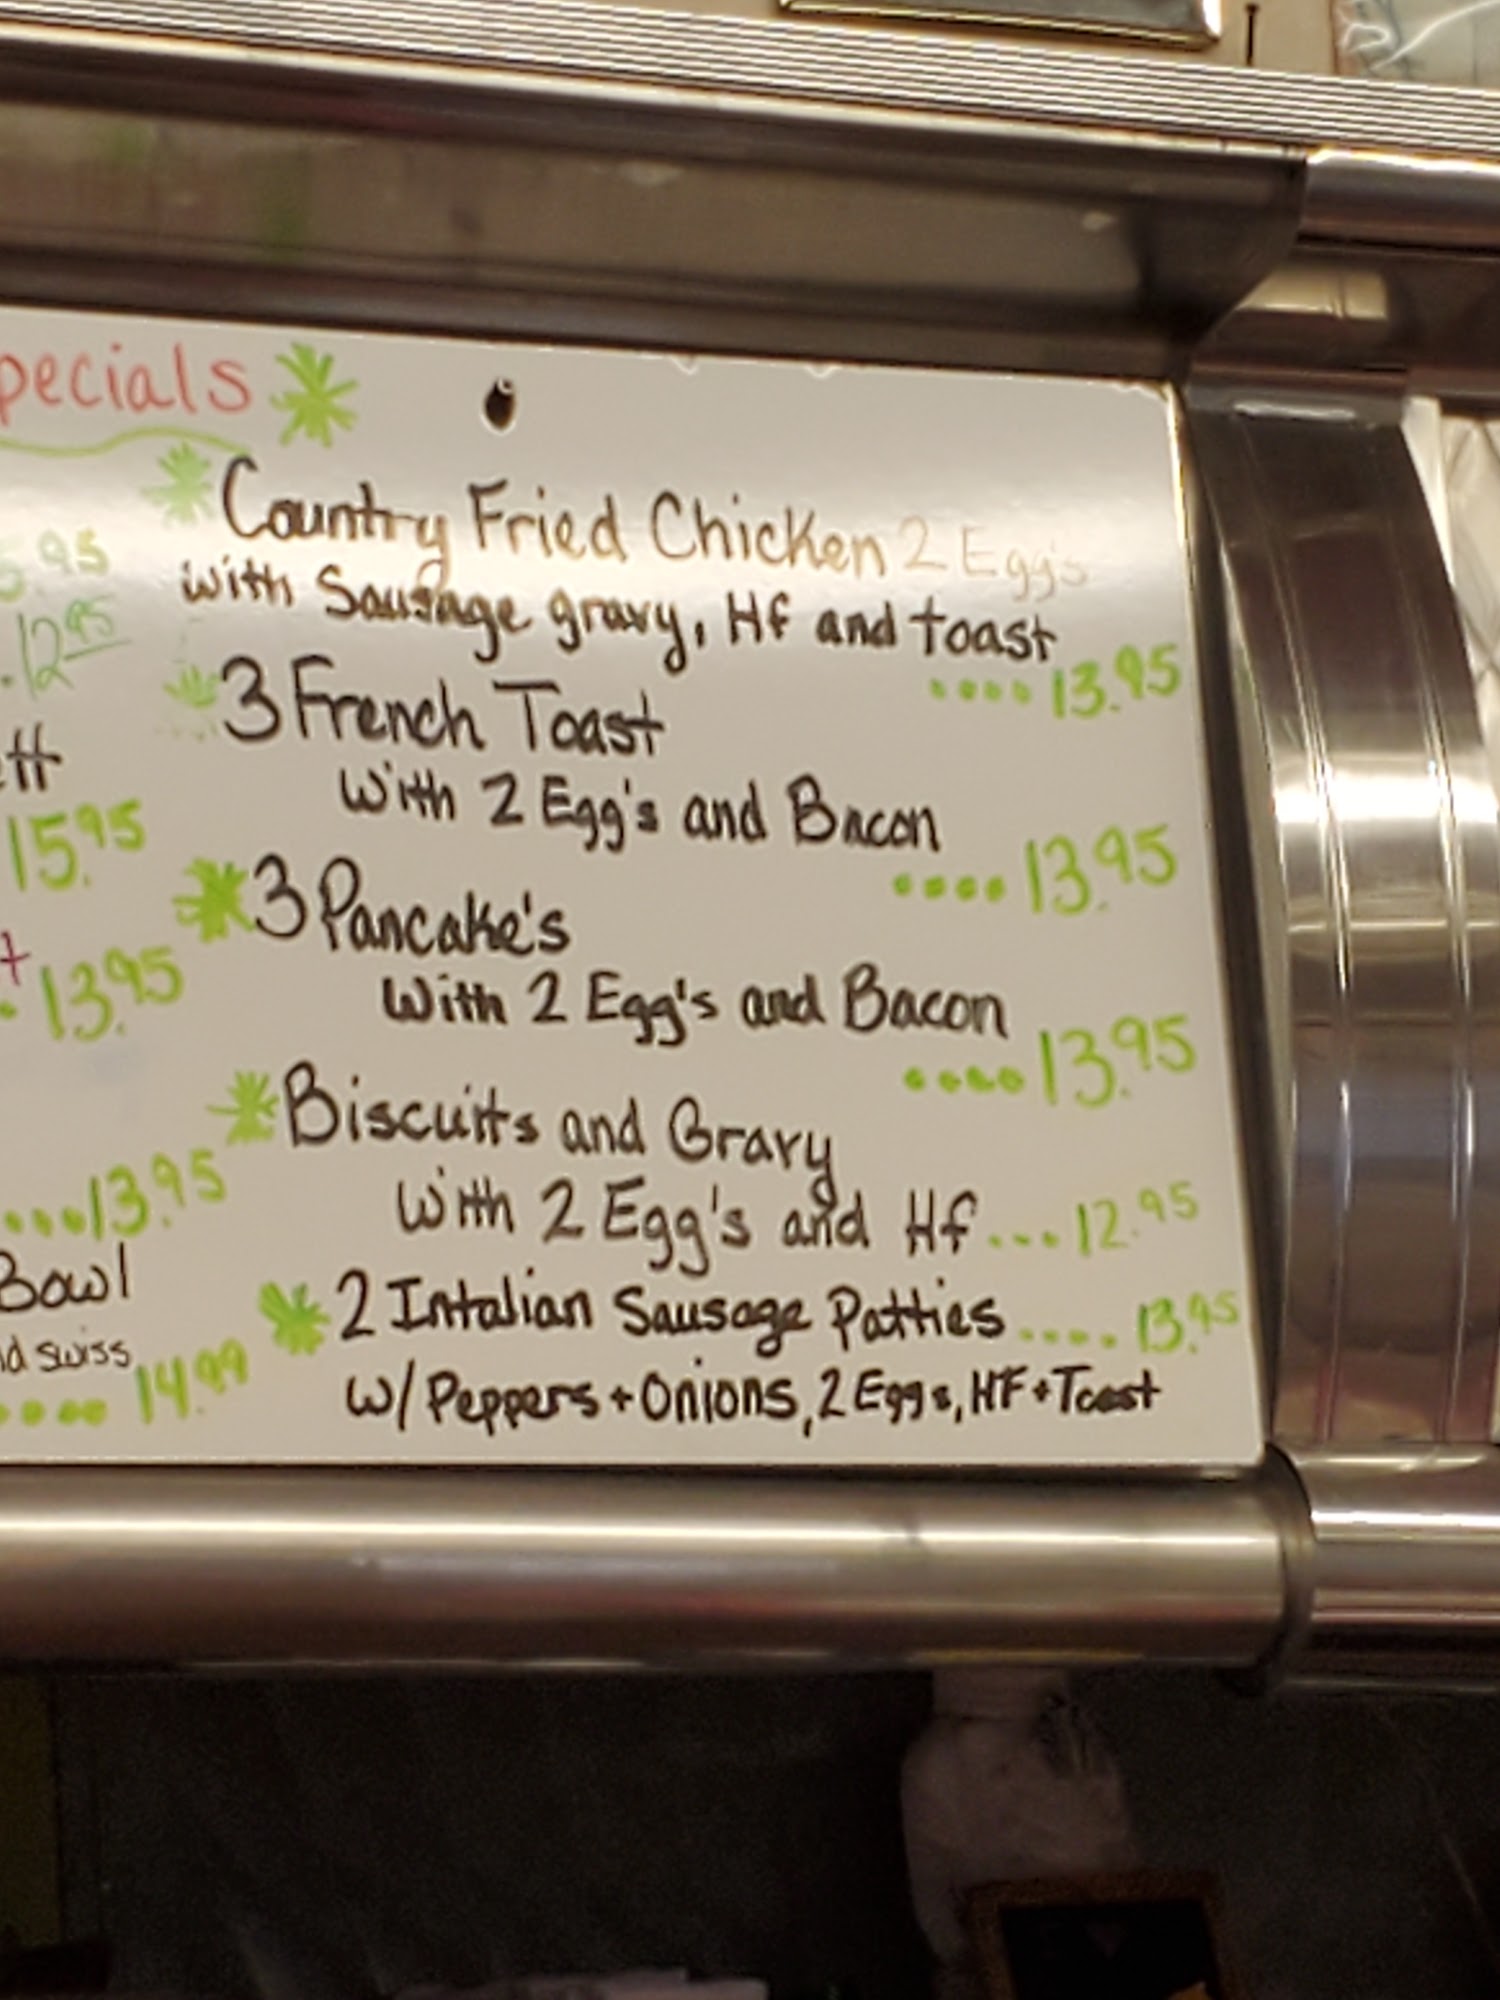 pecials
Country Fried Chicken 2 Egg's
with Sausage gravy, Hf and toast
.... 13.95
3 French Toast
With 2 Egg's and Bacon
.... 13.95
3 Pancake's
With 2 Egg's and Bacon
.... 13.95
Biscuits and Gravy
With 2 Egg's and Hf ... 12.95
2 Intalian Sausage Patties .... 13.95
w/ Peppers + Onions, 2 Eggs, HF + Toast
5.95
. 12 95
ett
15.95
t
. 13.95
.... 13.95
Bowl
nd swiss
.... 14.99